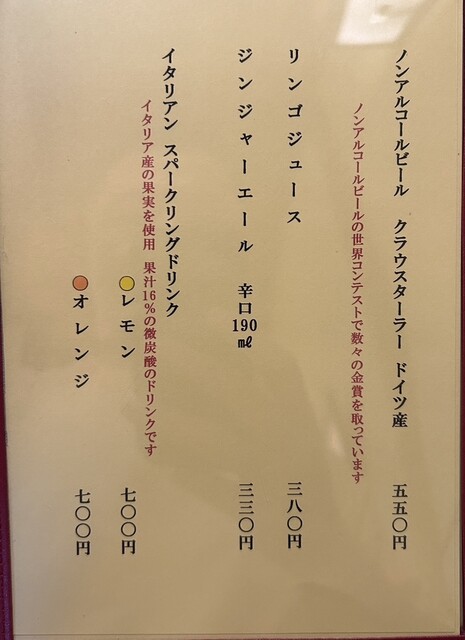 ノンアルコールビール クラウスターラー ドイツ産 五五〇円
ノンアルコールビールの世界コンテストで数々の金賞を取っています
リンゴジュース 三八〇円
ジンジャーエール 辛口190㎖ 三三〇円
イタリアン スパークリングドリンク
イタリア産の果実を使用 果汁16%の微炭酸のドリンクです
レモン 七〇〇円
オレンジ 七〇〇円